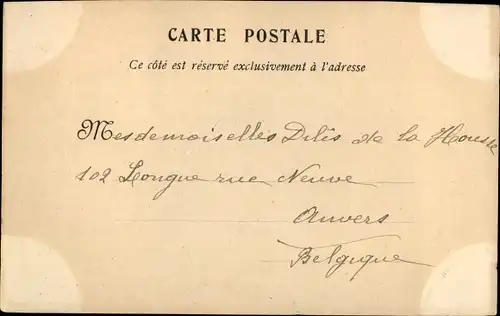 CARTE POSTALE
Ce côté est réservé exclusivement à l'adresse
Mesdemoiselles Dilis de la Housse
102 Longue rue Neuve
Anvers
Belgique